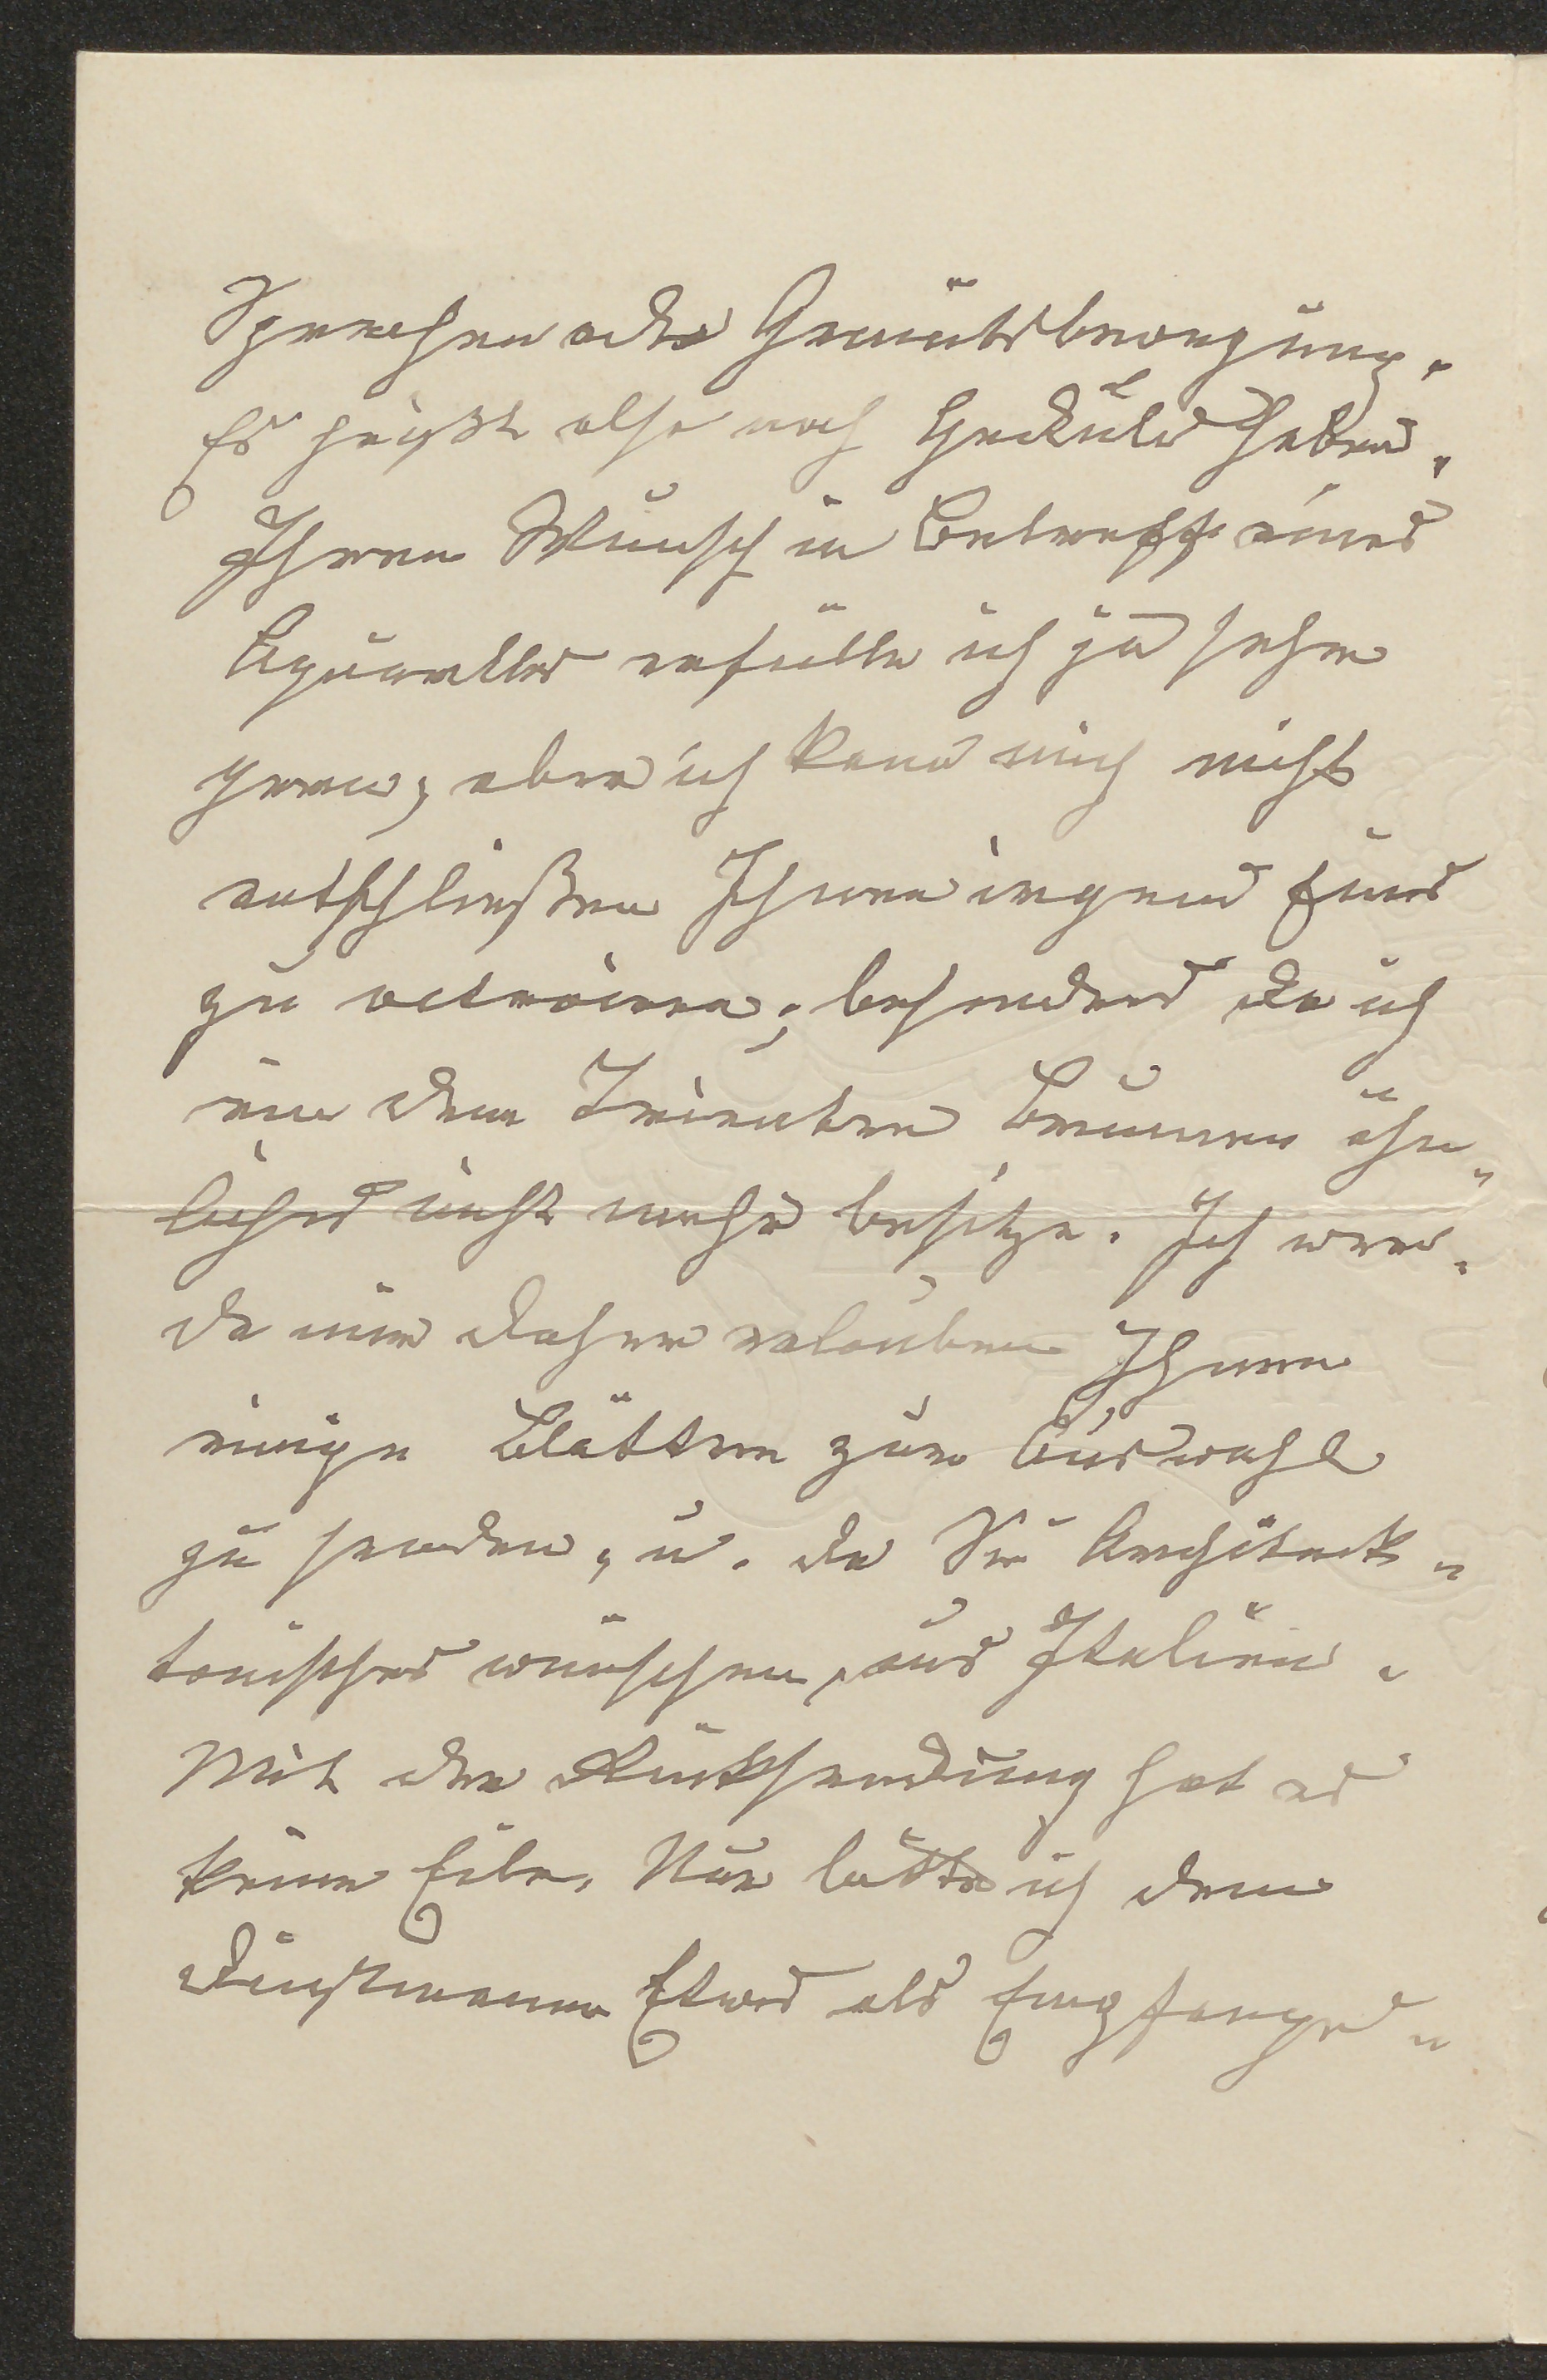 Sprechen oder Gemütsbewegung.
Es heißt also noch Geduld haben.
Ihren Wunsch in Betreff eines
Aquarelles erfülle ich ja sehr
gern, aber ich kann mich nicht
entschließen Ihnen irgend Eins
zu octroiren; besonders da ich
ein dem Trienter Brunnen ähn-
liches nicht mehr besitze. Ich wer-
de mir daher erlauben Ihnen
einige Blätter zur Auswahl
zu senden, u. da Sie Architeck-
tonisches wünschen, aus Italien.
Mit der Rücksendung hat es
keine Eile. Nur bitte ich dem
Dienstmann Etwas als Empfangs-